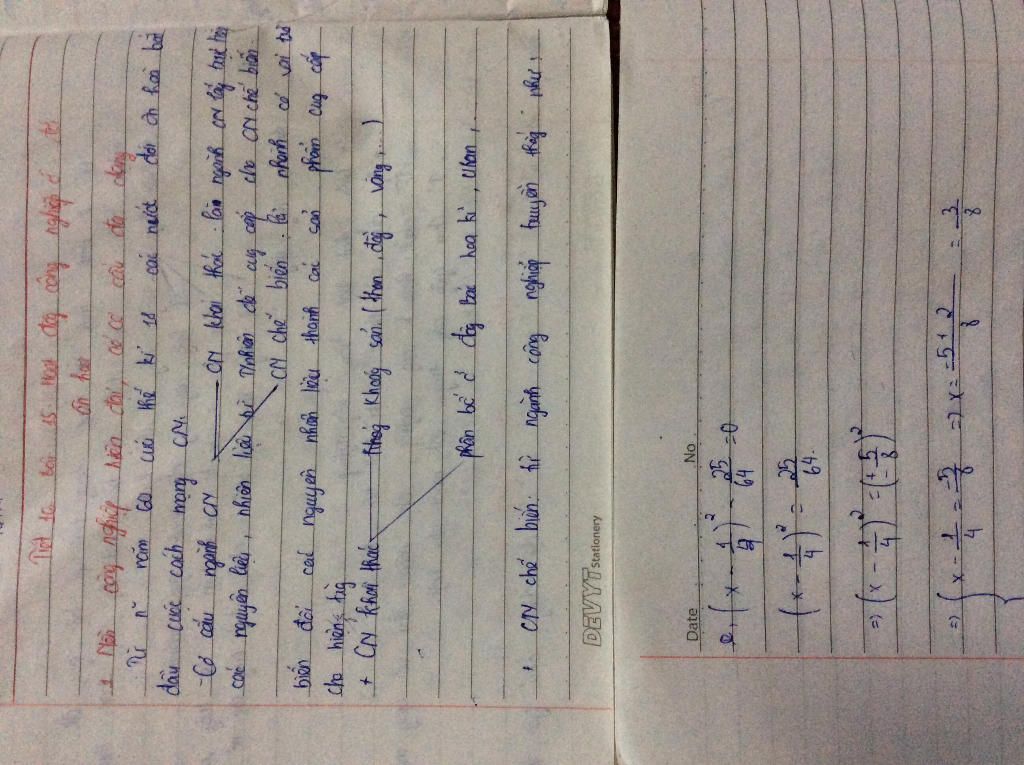 Tiết 16 bài 15 Hoạt động công nghiệp ở đới
ôn hoà
1 Nền công nghiệp hiện đại, có cơ cấu đa dạng
- Từ n~ năm 60 của thế kỉ 18 các nước đới ôn hoà bắt
đầu cuộc cách mạng CN.
- Cơ cấu ngành CN CN khai thác : là ngành CN lấy trực tiếp
các nguyên liệu, nhiên liệu từ Tnhiên để cung cấp cho CN chế biến
CN chế biến : là ngành có vai trò
biến đổi các nguyên nhiên liệu thành các sản phẩm cung cấp
cho
+ CN khai thác khoáng sản (than, đồng, vàng, ..)
phân bố ở đông bắc hoa kì, Uran, .
+ CN chế biến: từ ngành công nghiệp truyền thống như :
DEVYT Stationery
Date No
e, (x - 1/4)² - 25/64 = 0
(x - 1/4)² = 25/64.
=> (x - 1/4)² = (± 5/8)²
=> { x - 1/4 = -5/8 => x = -5+2/8 = -3/8